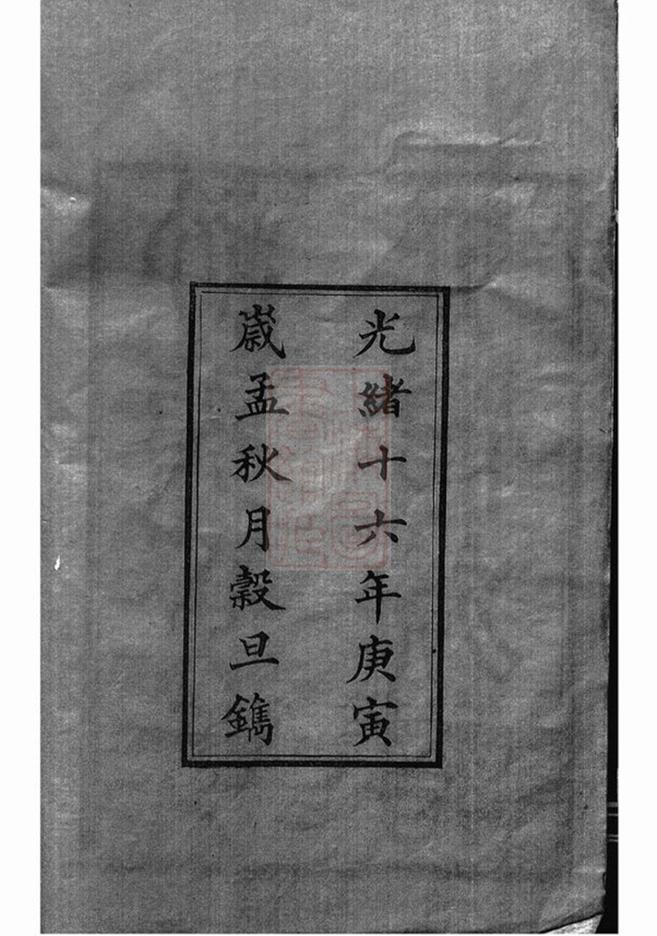 光緒十六年庚寅
歲孟秋月穀旦鐫